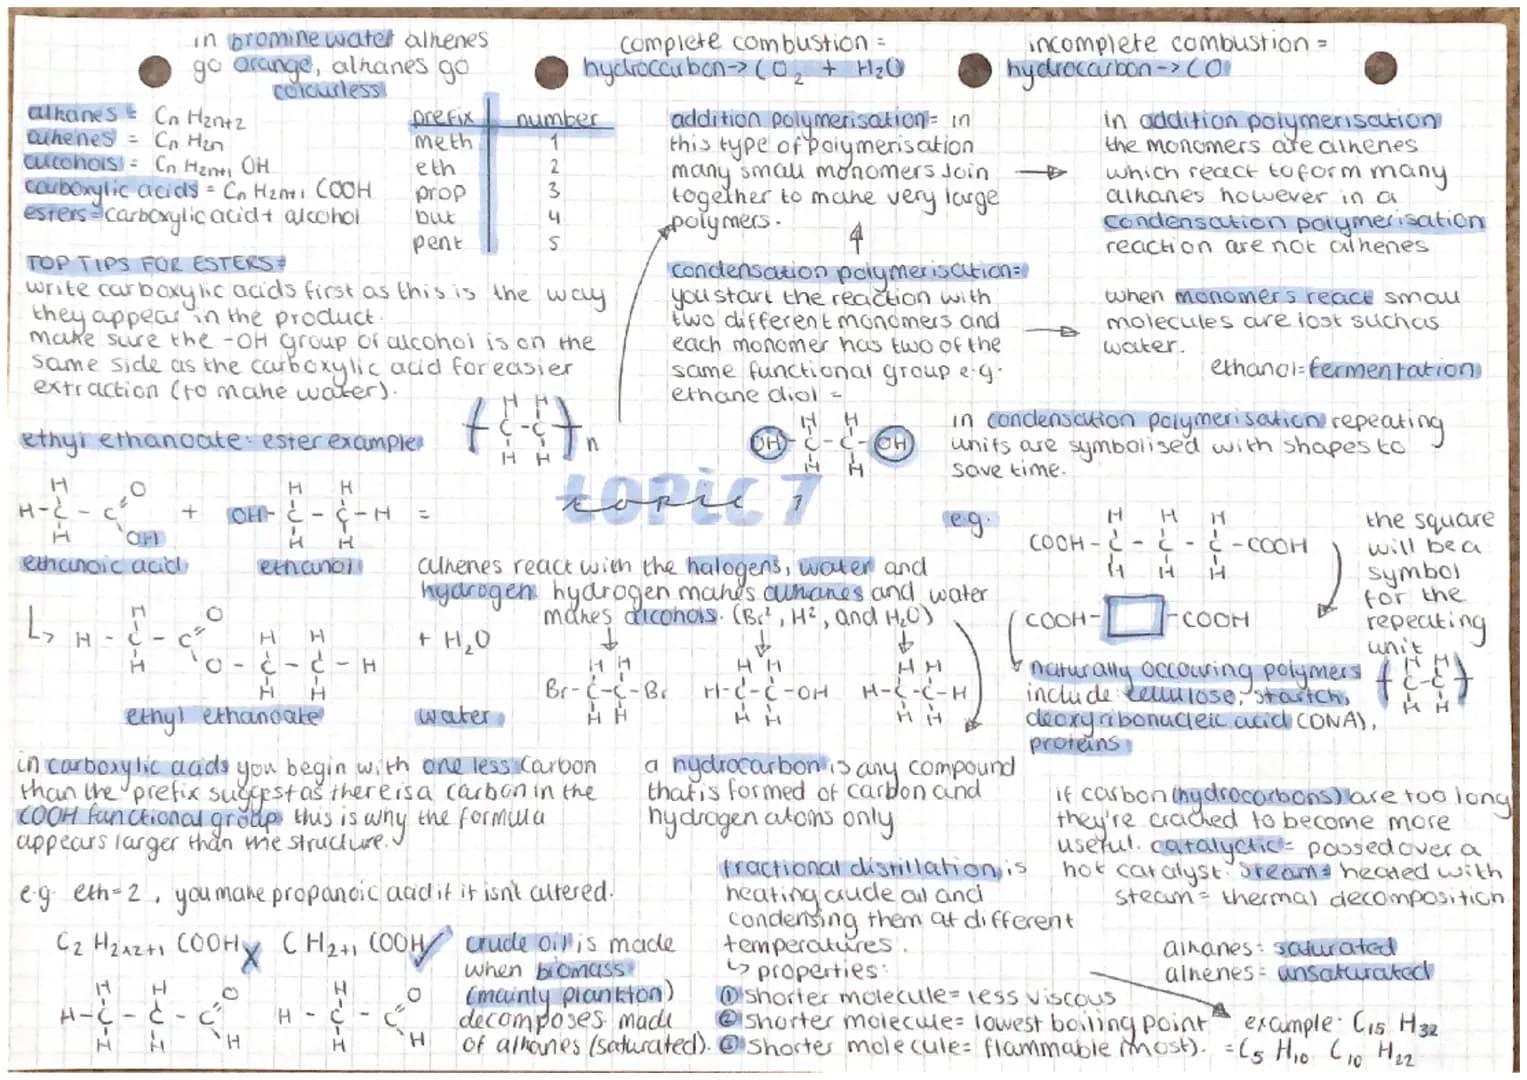 in bromine water alkenes
go orange, alkanes go
colourless
complete combustion =
hydrocarbon -> CO₂ + H₂O
incomplete combustion =
hydrocarbon -> CO
alkanes = Cn H2n+2
alkenes = Cn H2n
alcohols = Cn H2n+1 OH
carboxylic acids = Cn H2n+1 COOH
esters = carboxylic acid + alcohol
prefix number
meth 1
eth 2
prop 3
but 4
pent 5
addition polymerisation = in
this type of polymerisation
many small monomers join
together to make very large
polymers.
in addition polymerisation
the monomers are alkenes
which react to form many
alkanes however in a
condensation polymerisation
reaction are not alkenes
TOP TIPS FOR ESTERS =
write carboxylic acids first as this is the way
they appear in the product.
make sure the -OH group of alcohol is on the
same side as the carboxylic acid for easier
extraction (to make water).
condensation polymerisation =
you start the reaction with
two different monomers and
each monomer has two of the
same functional group e.g.
ethane diol =
when monomers react small
molecules are lost such as
water.
ethanol = fermentation
H H
C - C
H H
n
H H
OH - C - C - OH
H H
in condensation polymerisation repeating
units are symbolised with shapes to
save time.
ethyl ethanoate: ester example
topic 7
topic 7
H O H H
H - C - C + OH - C - C - H =
H OH H H
ethanoic acid ethanol
e.g.
H H H
COOH - C - C - C - COOH
H H H
COOH - - COOH
the square
will be a
symbol
for the
repeating
unit
H H
C - C
H H
alkenes react with the halogens, water and
hydrogen. hydrogen makes alkanes and water
makes alcohols. (Br², H², and H₂O)
H O
H - C - C H H + H₂O
H O - C - C - H
H H
ethyl ethanoate water
H H
Br - C - C - Br
H H
H H
H - C - C - OH
H H
H H
H - C - C - H
H H
naturally occouring polymers
include: cellulose, startch,
deoxyribonucleic acid (DNA),
proteins
in carboxylic acids you begin with one less carbon
than the prefix suggest as there is a carbon in the
COOH functional group this is why the formula
appears larger than the structure.
a hydrocarbon is any compound
that is formed of carbon and
hydrogen atoms only
if carbon (hydrocarbons) are too long
they're cracked to become more
useful. catalyctic = passed over a
hot catalyst. steam = heated with
steam = thermal decomposition
e.g. eth = 2, you make propanoic acid if it isn't altered.
C₂ H2x2+1 COOH X C H2+1 COOH ✓
H H O
H - C - C - C
H H H
H O
H - C - C
H H
crude oil is made
when biomass
(mainly plankton)
decomposes. made
of alkanes (saturated).
fractional distillation is
heating crude oil and
condensing them at different
temperatures.
↳ properties:
① shorter molecule = less viscous
② shorter molecule = lowest boiling point
③ shorter molecule = flammable (most).
alkanes = saturated
alkenes = unsaturated
example: C15 H32
= C5 H10 C10 H22